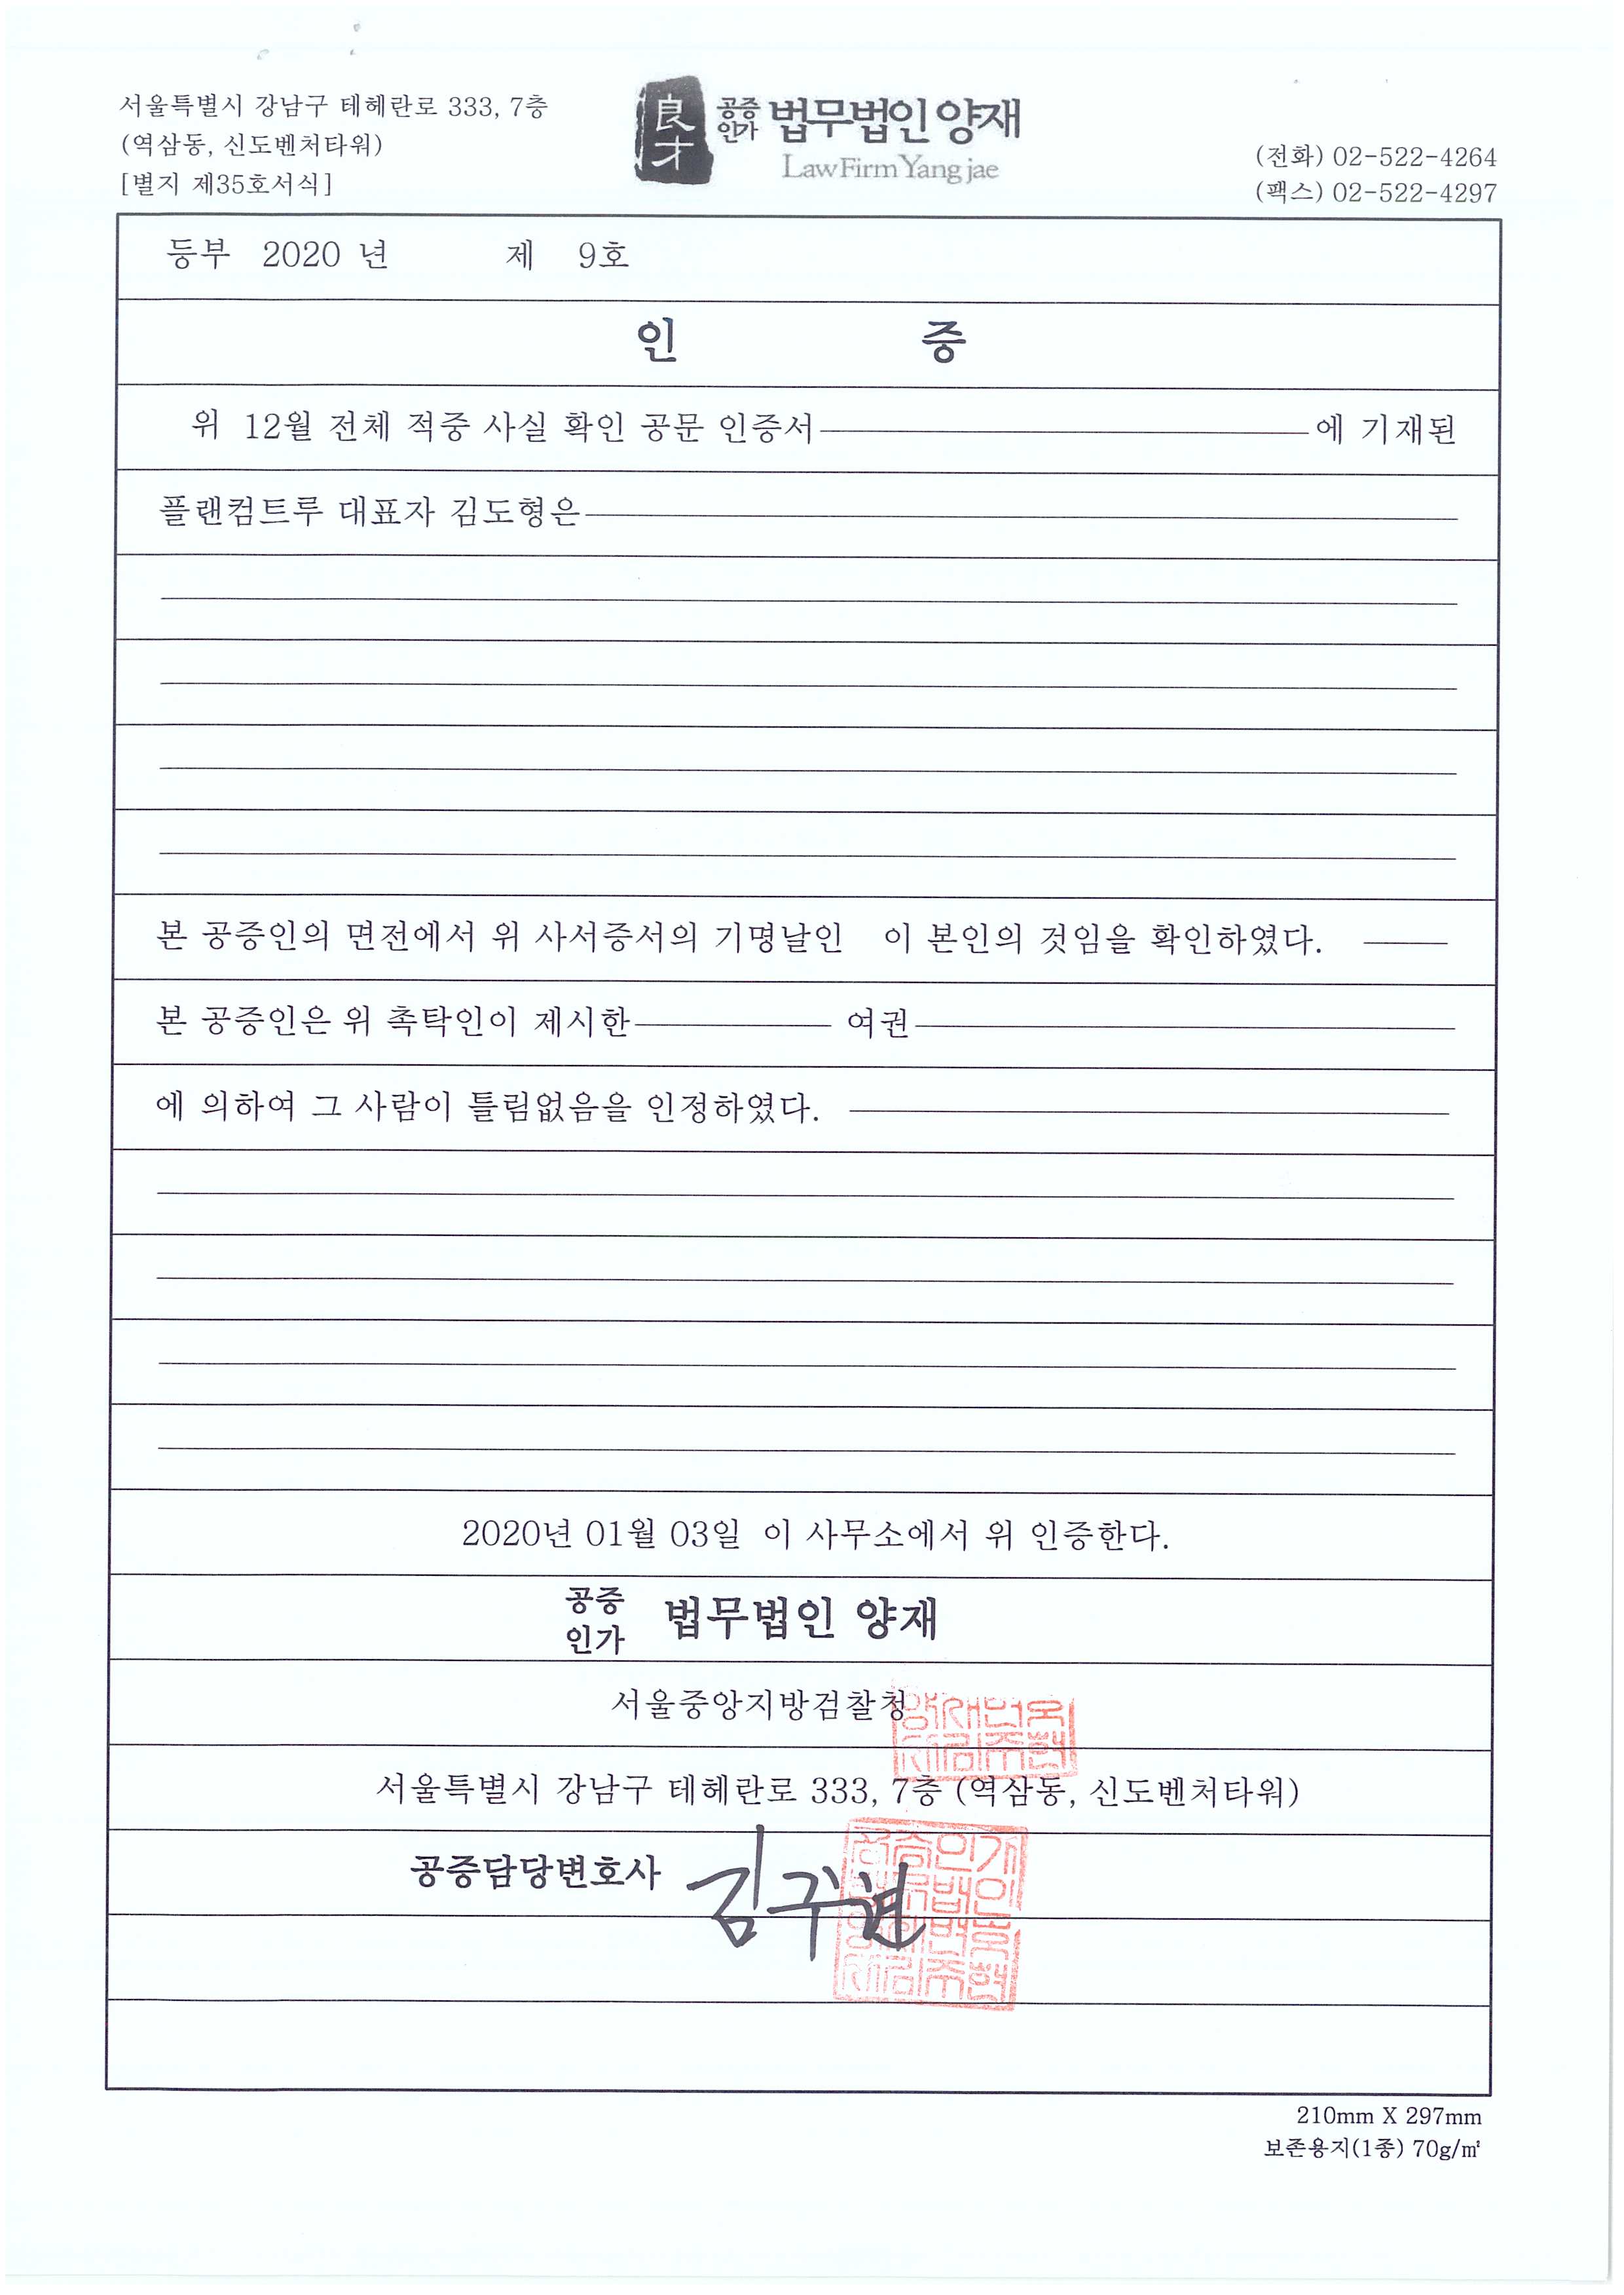 서울특별시 강남구 테헤란로 333, 7층
(역삼동, 신도벤처타워)
[별지 제35호서식]
良才
공증인가 법무법인 양재
Law Firm Yang jae
(전화) 02-522-4264
(팩스) 02-522-4297
등부 2020 년 제 9호
인 증
위 12월 전체 적중 사실 확인 공문 인증서 에 기재된
플랜컴트루 대표자 김도형은
본 공증인의 면전에서 위 사서증서의 기명날인 이 본인의 것임을 확인하였다.
본 공증인은 위 촉탁인이 제시한 여권
에 의하여 그 사람이 틀림없음을 인정하였다.
2020년 01월 03일 이 사무소에서 위 인증한다.
공증인가 법무법인 양재
서울중앙지방검찰청
서울특별시 강남구 테헤란로 333, 7층 (역삼동, 신도벤처타워)
공증담당변호사
210mm X 297mm
보존용지(1종) 70g/㎡